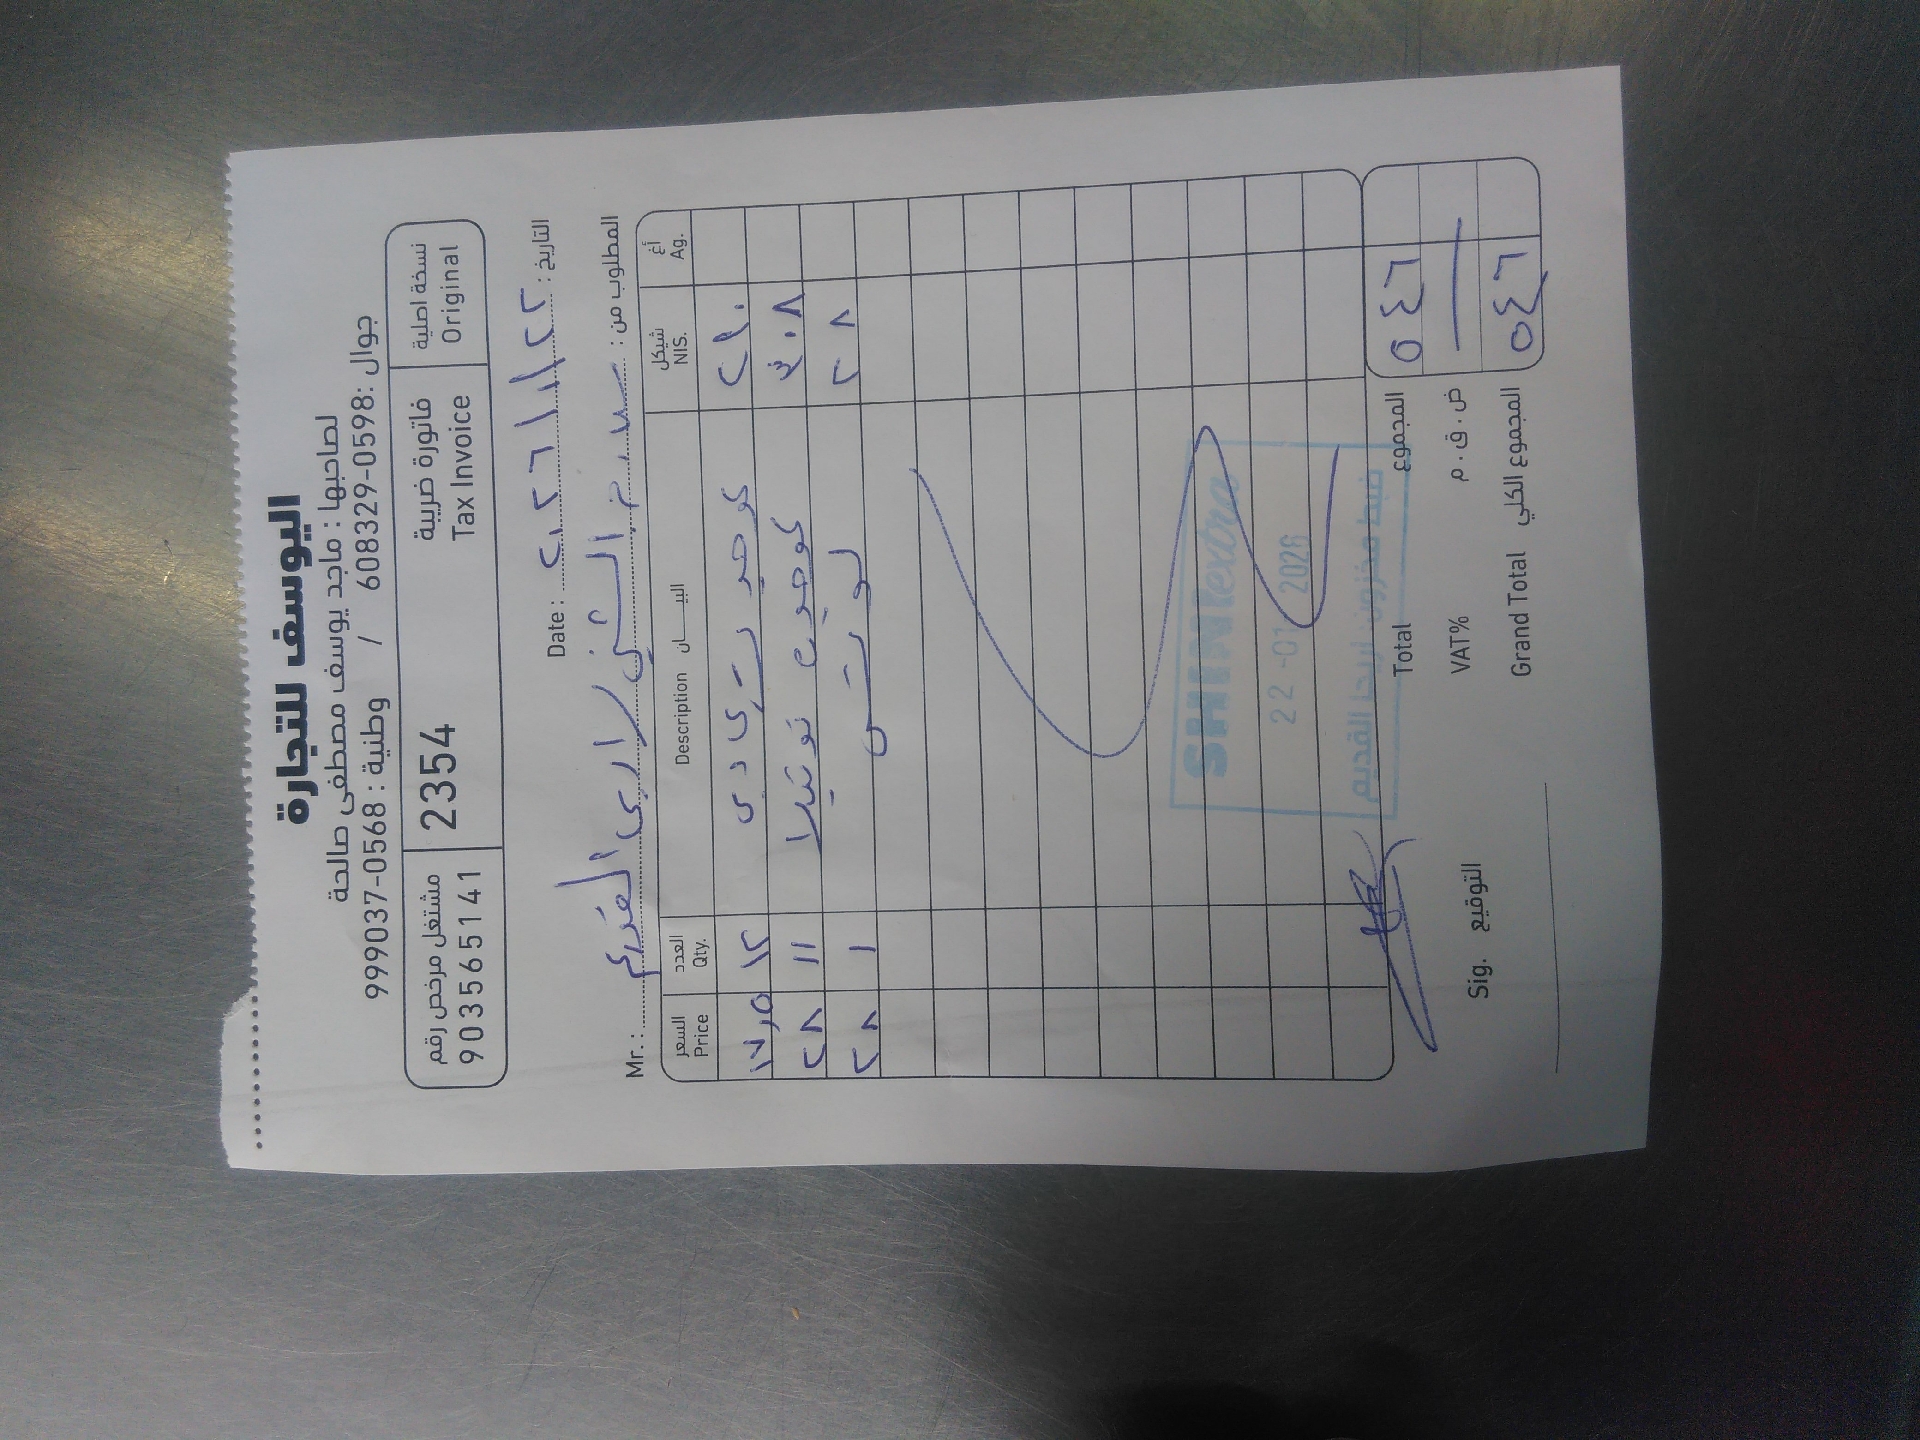 اليوسف للتجارة
لصاحبها : ماجد يوسف مصطفى صالحة
جوال :0598-608329 / وطنية : 0568-999037
مشتغل مرخص رقم 903565141
2354
فاتورة ضريبة Tax Invoice
نسخة اصلية Original
Date : ٢٠٢٦/١/٢٢ التاريخ :
Mr. : الشني / اريحا القديم المطلوب من :
السعر Price العدد Qty. Description البيــــان شيكل NIS. أغ Ag.
١٧,٥ ١٢ ٢١٠
٢٨ ١١ نوتيلا ٣٠٨
٢٨ ١ لوتس ٢٨
SHINI extra
22 -01 2026
ضبط مخزون اريحا القديم
Total المجموع ٥٤٦
VAT% ض . ق . م
Grand Total المجموع الكلي ٥٤٦
Sig. التوقيع